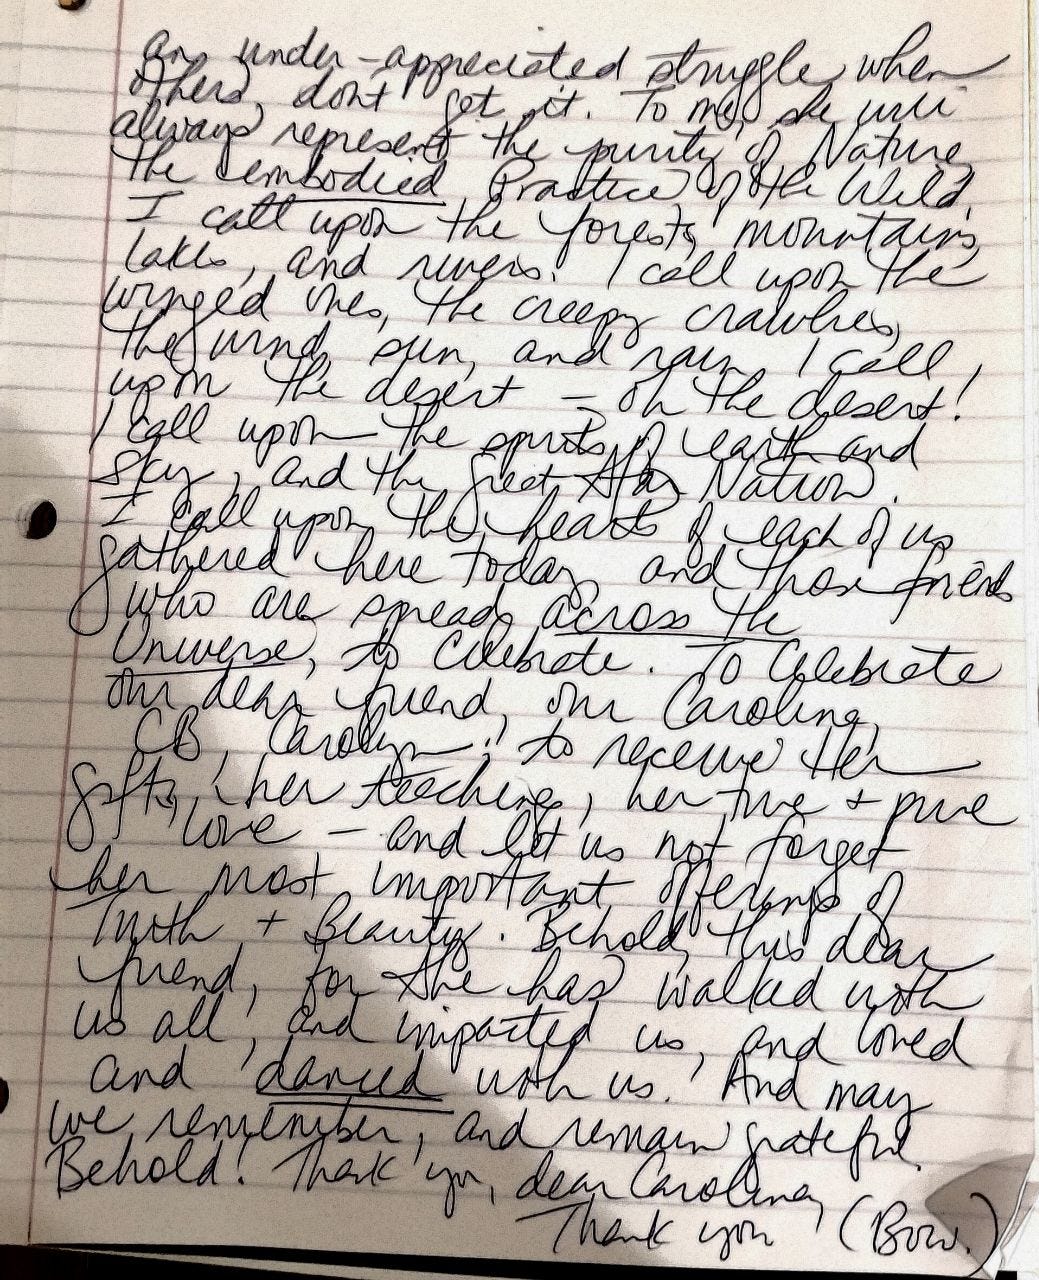 an under-appreciated struggle when
others, dont get it. To me, she will
always represent the purity of Nature,
the embodied Practice of the Wild.
I call upon the forests, mountains,
lakes, and rivers. I call upon the
winged ones, the creepy crawlies,
the wind, sun, and rain. I call
upon the desert - oh the desert!
I call upon the spirits of earth and
sky, and the great Star Nation.
I call upon the hearts of each of us
gathered here today, and those friends
who are spread across the
Universe, to Celebrate. To Celebrate
our dear friend, our Carolina,
CB, Carolyn! to receive Her
gifts, her teachings, her true + pure
love - and let us not forget
her most important offerings of
Truth + Beauty. Behold, this dear
friend, for She has walked with
us all, and impacted us, and loved
and danced with us! And may
we remember, and remain grateful.
Behold! Thank you, dear Carolina,
Thank you (Bow.)